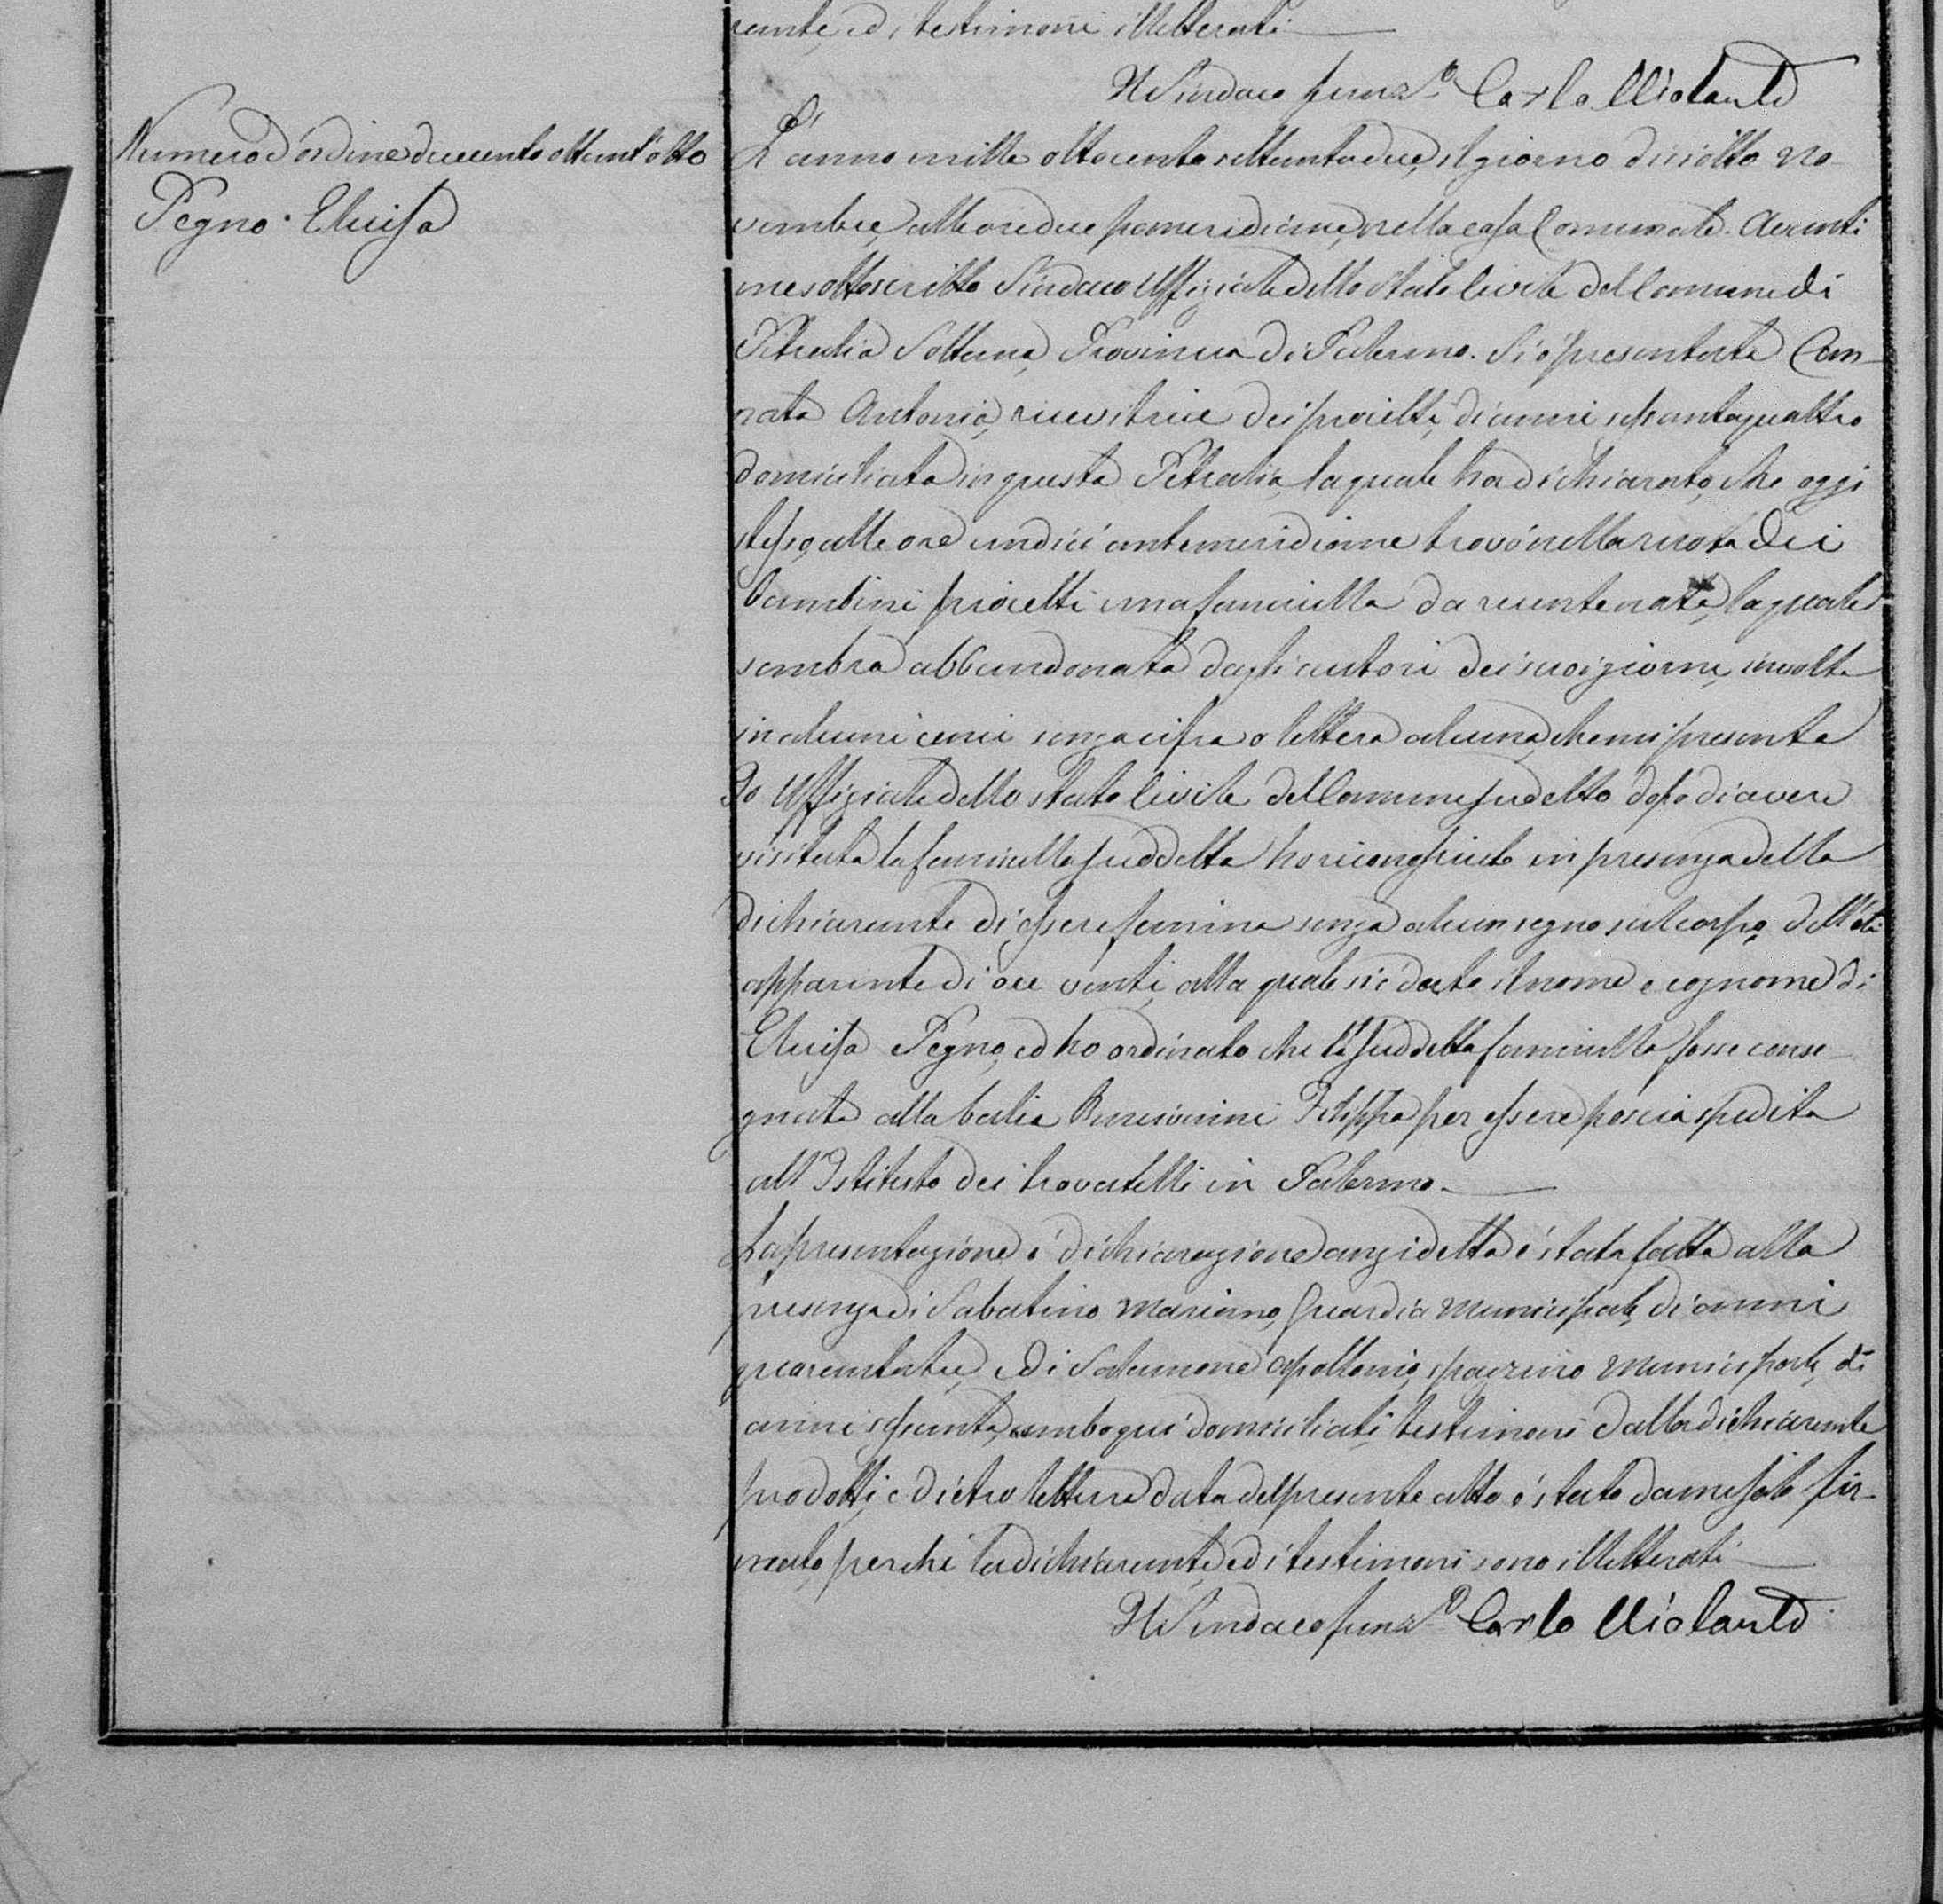 rante, ed i testimoni illetterati
Il Sindaco funz.e Carlo Violante
Numero d'ordine duecento ottant'otto
Pegno Eluisa
L'anno mille ottocento settantadue, il giorno dieciotto No-
vembre, alle ore due pomeridiane, nella casa Comunale. Avanti
me sottoscritto Sindaco Uffiziale dello Stato Civile del Comune di
Petralia Sottana, Provincia di Palermo. Si è presentata Can-
nata Antonia, ricevitrice dei proietti, di anni sessantaquattro
domiciliata in questa Petralia, la quale ha dichiarato, che oggi
stesso, alle ore undici antemeridiane trovò nella ruota dei
bambini proietti una fanciulla da recente nata, la quale
sembra abbandonata dagli autori dei suoi giorni, involta
in alcuni cenci senza cifra o lettera alcuna, che mi presenta
Io Uffiziale dello stato Civile del Comune sudetto dopo di avere
visitata la fanciulla suddetta ho riconosciuto in presenza della
dichiarante di essere femina senza alcun segno sul corpo, dell'età
apparente di ore venti, alla quale si è dato il nome e cognome di
Eluisa Pegno, ed ho ordinato che la suddetta fanciulla fosse conse-
gnata alla balia Filippa per essere poscia spedita
all'Istituto dei trovatelli in Palermo.
La presentazione e dichiarazione anzidetta è stata fatta alla
presenza di Sabatino Mariano, Guardia Municipale, di anni
quarantatre, e di Salamone Apollonio, spazzino Municipale, di
anni sessanta, ambo qui domiciliati, testimoni dalla dichiarante
prodotti, e dietro lettura data del presente atto è stato da me solo fir-
mato, perchè la dichiarante, ed i testimoni sono illetterati
Il Sindaco funz.e Carlo Violante